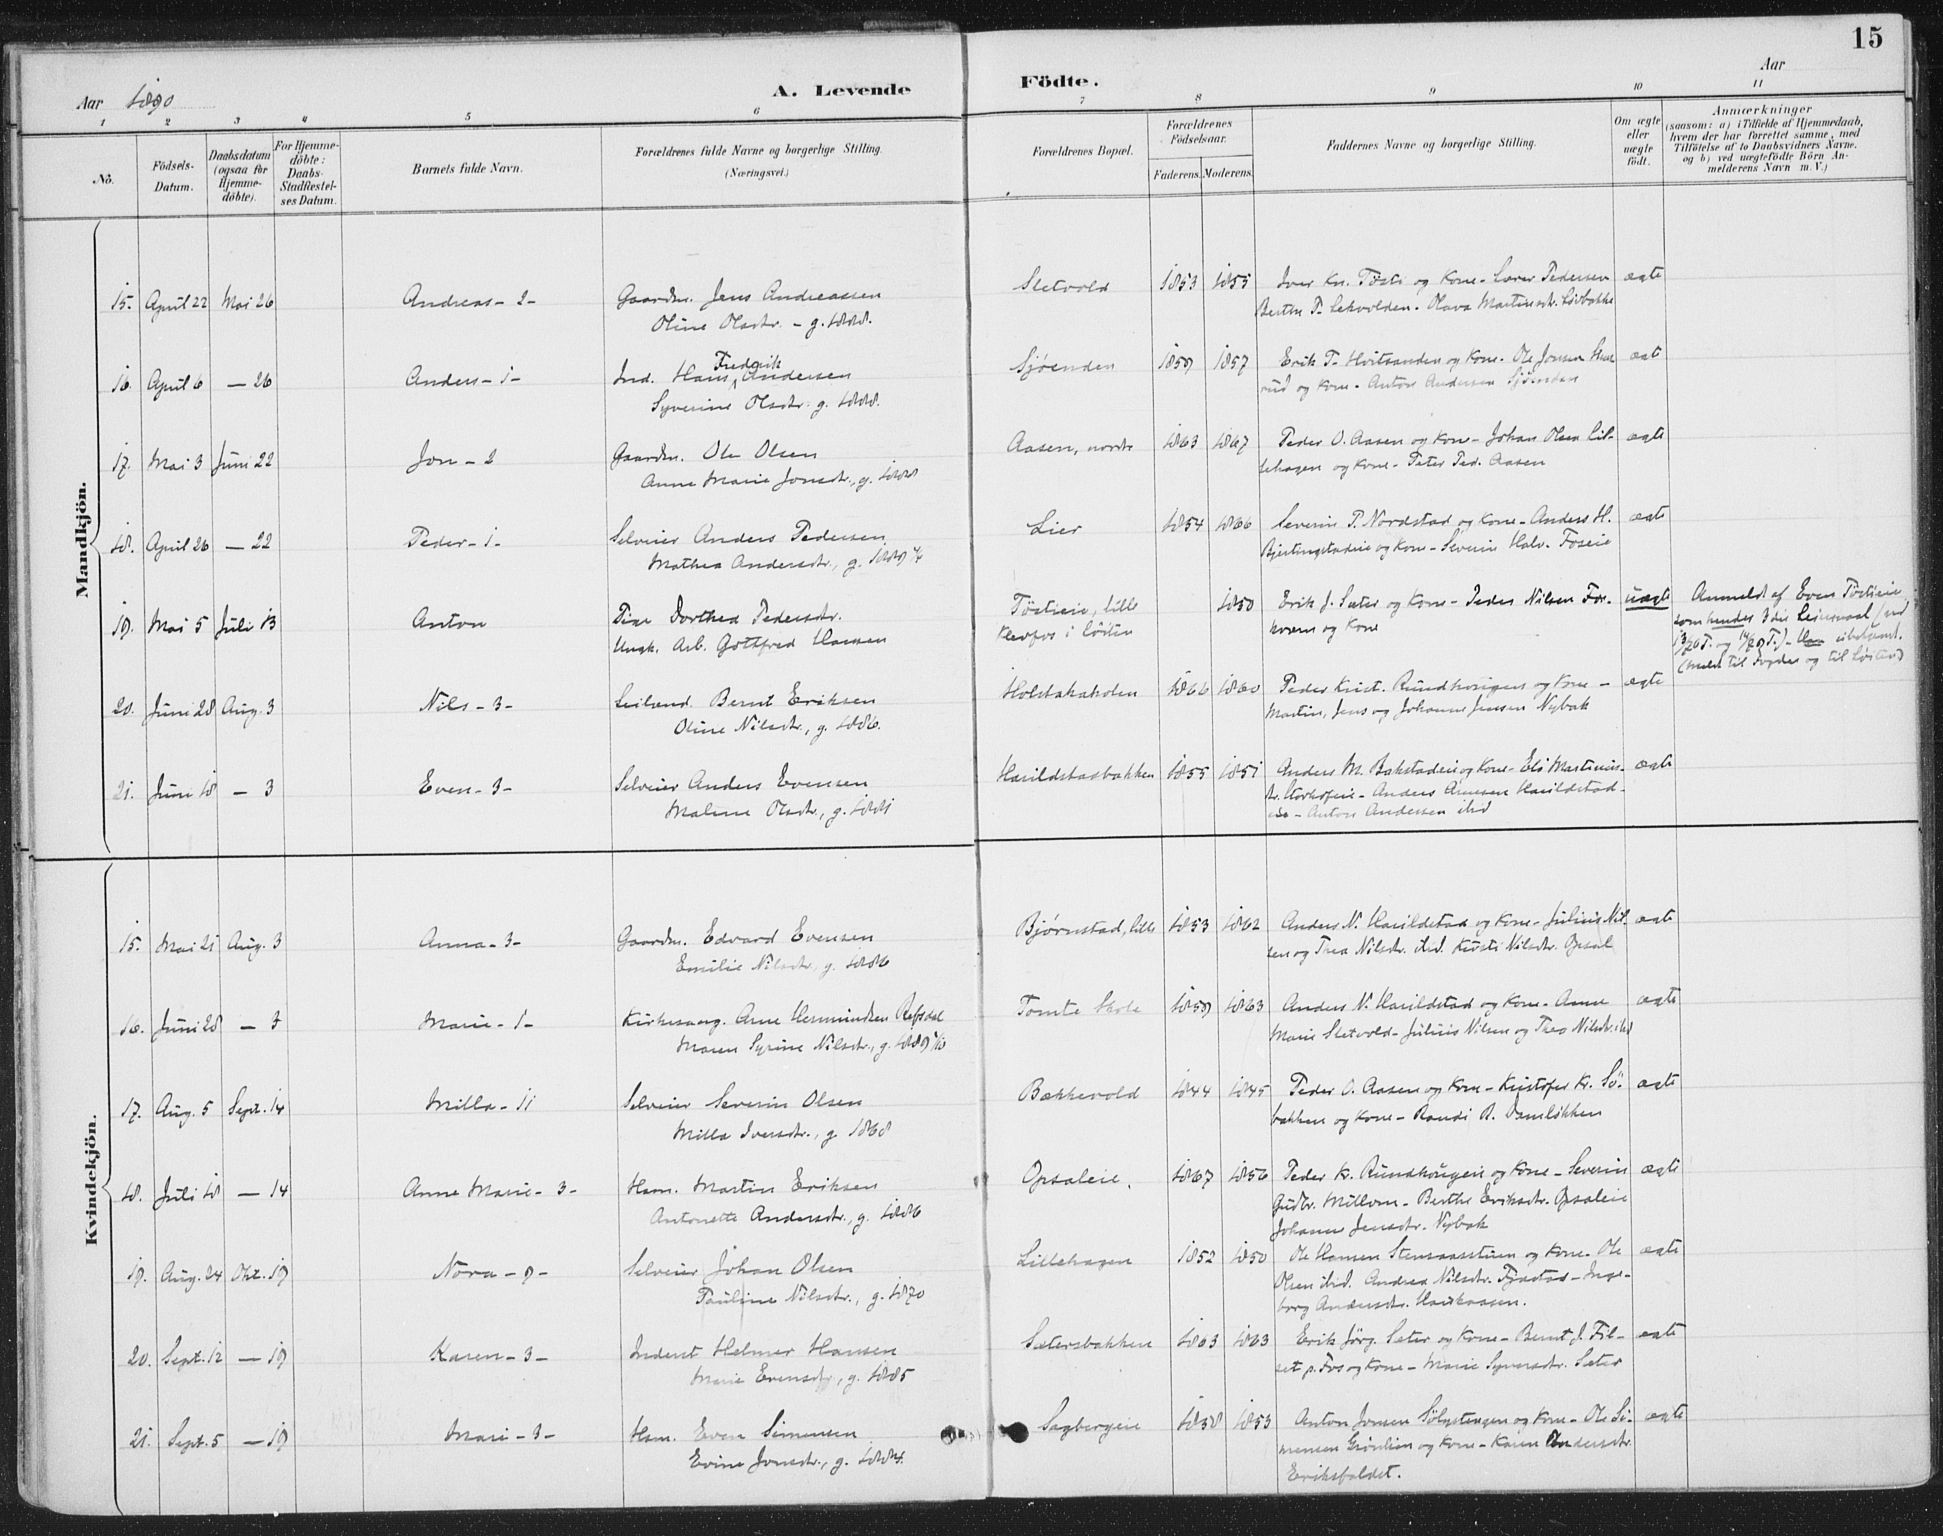 15
Aar 1890
A. Levende Födte.
Aar
1 2 3 4 5 6 7 8 9 10 11
No.
Födsels-Datum.
Daabsdatum (ogsaa for Hjemme-döbte).
For Hjemme-döbte: Daabs-Stadfæstel-ses Datum.
Barnets fulde Navn.
Forældrenes fulde Navne og borgerlige Stilling. (Næringsvei.)
Forældrenes Bopæl.
Forældrenes Födselsaar.
Faderens. Moderens.
Faddernes Navne og borgerlige Stilling.
Om ægte eller uægte födt.
Anmærkninger
(saasom: a) i Tilfælde af Hjemmedaab,
hvem der har forrettet samme, med
Tilföielse af to Daabsvidners Navne.
og b) ved uægtefödte Börn An-
melderens Navn m. V.)
Mandkjön.
15. April 22 Mai 26 Andreas - 2 - Gaardm. Jens Andreassen Sletvold 1853 1855 Iver Kr. Tösti og Kone - Lover Pedersen ægte
Oline Olsdtr. - g. 1888. Berthe P. Lekvolden. Olava Martinsdtr. Lövbakke
16. April 6 — 26 Anders - 1 - Ind. Hans Frederik Andersen Sjøenden 1859 1857 Erik T. Hvitsanden og Kone. Ole Jonsen Hue- ægt
Syverine Olsdtr. g. 1888. rud og Kone - Anton Andersen Sjøenden
17. Mai 3 Juni 22 Jon - 2 Gaardm. Ole Olsen Aasen, nordre 1863 1867 Peder O. Aasen og Kone - Johan Olsen Lil- ægte
Anne Marie Jonsdtr., g. 1888 lehagen og Kone - Peter Ped. Aasen
18. April 26 — 22 Peder - 1 - Selveier Anders Pedersen Lier 1854 1866 Severin P. Nordstad og Kone - Anders H. ægte
Mathea Andersdtr., g. 1889 Bjertingstadeie og Kone - Severin Halv. Foseie
19. Mai 5 Juli 13 Anton Pige Dorthea Pedersdtr. Töstieie, lille 1850 Erik J. Sæter og Kone - Peder Nilsen Fos- uægte Anmeldt af Even Töstieie
Ungk. Arb. Gottfred Hansen Klevfos i Löiten kvern og Kone som hendes 3die Leiermaal
20. Juni 28 Aug. 3 Nils - 3 - Leilænd. Bernt Eriksen Holstakakolen 1866 1860 Peder Krist. Rundhougen og Kone - ægte
Oline Nilsdtr., g. 1886. Martin, Jens og Johanne Jensen Nybak
21. Juni 18 — 3 Even - 3 - Selveier Anders Evensen Harildstadbakken 1855 1851 Anders M. Bakstadeie og Kone - Eli Martinus- ægte
Maline Olsdtr., g. 1881 dtr. Storhofeie - Anders Arnesen Harildstad-
eie - Anton Andersen ibid
Kvindekjön.
15. Mai 21 Aug. 3 Anna - 3 - Gaardm. Edvard Evensen Bjørnstad, lille 1853 1862 Anders N. Harildstad og Kone - Julius Nil- ægte
Emilie Nilsdtr., g. 1886 sen og Thea Nilsdtr. ibid. Kirsti Nilsdtr. Opsal
16. Juni 28 — 3 Marie - 1 - Kirkesang. Arne Hermundsen Refsdal Tomte Skole 1859 1863 Anders N. Harildstad og Kone - Anne ægte
Maren Syrine Nilsdtr., g. 1889 Marie Sletvold - Julius Nilsen og Thea Nilsdtr. ibid
17. Aug. 5 Sept. 14 Milla - 11 Selveier Severin Olsen Bækkevold 1844 1845 Peder O. Aasen og Kone - Kristofer Kr. Sö- ægte
Milla Iversdtr., g. 1868 bakken og Kone - Randi R. Damløkken
18. Juli 18 — 14 Anne Marie - 3 - Hsm. Martin Eriksen Opsaleie. 1867 1856 Peder Kr. Rundhougen og Kone - Severin ægte
Antonette Andersdtr., g. 1886 Gudbr. Millom - Berthe Eriksdtr. Opsaleie
Johanne Jensdtr. Nybak
19. Aug. 24 Okt. 19 Nora - 9 - Selveier Johan Olsen Lillehagen 1852 1850 Ole Hansen Stensaasstuen og Kone - Ole ægte
Pauline Nilsdtr., g. 1870 Olsen ibid. Andrea Nilsdtr. Fjæstad - Inge-
borg Andersdtr. Haukaasen.
20. Sept. 12 — 19 Karen - 3 - Inderst Helmer Hansen Sætersbakken 1863 1863 Erik Jörg. Sæter og Kone - Bernt J. Fil- ægte
Marie Evensdtr., g. 1885 set p. Fos og Kone - Marie Syversdtr. Sæter
21. Sept. 5 — 19 Mari - 3 - Hsm. Even Simensen Sagbergeie 1858 1853 Anton Jonsen Sölystengen og Kone - Ole Si- ægte
Evine Jonsdtr., g. 1884. mensen Grönlien og Kone - Karen Andersdtr.
Eriksfaldet.